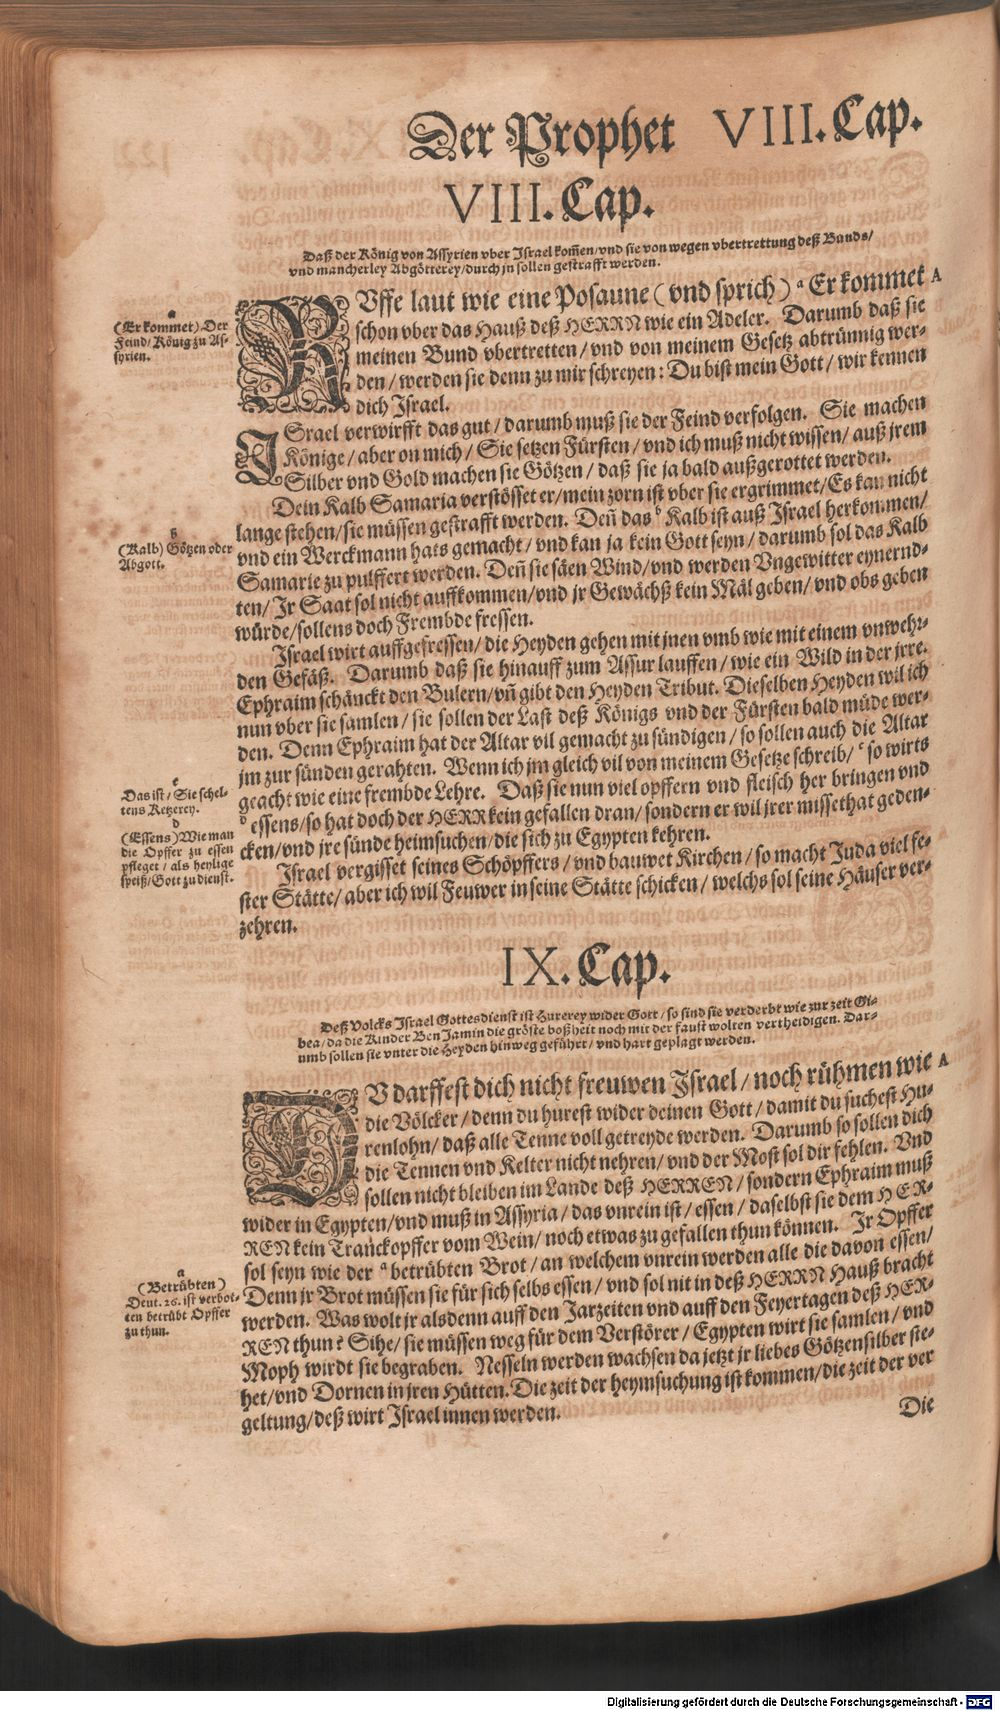 Der Prophet VIII. Cap.
VIII. Cap.
Daß der König von Assyrien vber Israel kom̃en/vnd sie von wegen vbertrettung deß Bunds/
vnd mancherley Abgötterey/durch jn sollen gestrafft werden.
RVffe laut wie eine Posaune (vnd sprich) a Er kommet A
schon vber das Hauß deß HERRN wie ein Adeler. Darumb daß sie
meinen Bund vbertretten/vnd von meinem Gesetz abtrünnig wer-
den/werden sie denn zu mir schreyen: Du bist mein Gott/wir kennen
dich Israel.
a
(Er kommet) Der
Feind/König zu As-
syrien.
ISrael verwirfft das gut/darumb muß sie der Feind verfolgen. Sie machen
Könige/aber on mich/Sie setzen Fürsten/vnd ich muß nicht wissen/auß jrem
Silber vnd Gold machen sie Götzen/daß sie ja bald außgerottet werden.
Dein Kalb Samaria verstösset er/mein zorn ist vber sie ergrimmet/Es kan nicht
lange stehen/sie müssen gestrafft werden. Den̄ das b Kalb ist auß Israel herkommen/
vnd ein Werckmann hats gemacht/vnd kan ja kein Gott seyn/darumb sol das Kalb
Samarie zu pulffert werden. Den̄ sie säen Wind/vnd werden Vngewitter eynernd-
ten/Ir Saat sol nicht auffkommen/vnd jr Gewächß kein Mäl geben/vnd obs geben
würde/sollens doch Frembde fressen.
b
(Kalb) Götzen oder
Abgott.
Israel wirt auffgefressen/die Heyden gehen mit jnen vmb wie mit einem vnwehr-
den Gefäß. Darumb daß sie hinauff zum Assur lauffen/wie ein Wild in der jrre.
Ephraim schänckt den Bulern/vn̄ gibt den Heyden Tribut. Dieselben Heyden wil ich
nun vber sie samlen/sie sollen der Last deß Königs vnd der Fürsten bald müde wer-
den. Denn Ephraim hat der Altar vil gemacht zu sündigen/so sollen auch die Altar
jm zur sünden gerahten. Wenn ich jm gleich vil von meinem Gesetze schreib/c so wirts
geacht wie eine frembde Lehre. Daß sie nun viel opffern vnd fleisch her bringen vnd
d essens/so hat doch der HERR kein gefallen dran/sondern er wil jrer missethat geden-
cken/vnd jre sünde heimsuchen/die sich zu Egypten kehren.
c
Das ist/Sie schel-
tens Ketzerey.
d
(Essens) Wie man
die Opffer zu essen
pfleget/als heylige
speiß/Gott zu dienst.
Israel vergisset seines Schöpffers/vnd bauwet Kirchen/so macht Juda viel fe-
ster Stätte/aber ich wil Feuwer in seine Stätte schicken/welchs sol seine Häuser ver-
zehren.
IX. Cap.
Deß Volcks Israel Gottesdienst ist Hurerey wider Gott/so sind sie verderbt wie zur zeit Gi-
bea/da die Kinder BenJamin die gröste boßheit noch mit der faust wolten vertheidigen. Dar-
umb sollen sie vnter die Heyden hinweg geführt/vnd hart geplagt werden.
DV darffest dich nicht freuwen Israel/noch rühmen wie A
die Völcker/denn du hurest wider deinen Gott/damit du suchest Hu-
renlohn/daß alle Tenne voll getreyde werden. Darumb so sollen dich
die Tennen vnd Kelter nicht nehren/vnd der Most sol dir fehlen. Vnd
sollen nicht bleiben im Lande deß HERREN/sondern Ephraim muß
wider in Egypten/vnd muß in Assyria/das vnrein ist/essen/daselbst sie dem HER-
REN kein Tranckopffer vom Wein/noch etwas zu gefallen thun können. Ir Opffer
sol seyn wie der a betrübten Brot/an welchem vnrein werden alle die davon essen/
Denn jr Brot müssen sie für sich selbs essen/vnd sol nit in deß HERRN Hauß bracht
werden. Was wolt jr alsdenn auff den Jarzeiten vnd auff den Feyertagen deß HER-
REN thun? Sihe/sie müssen weg für dem Verstörer/Egypten wirt sie samlen/vnd
Moph wirdt sie begraben. Nesseln werden wachsen da jetzt jr liebes Götzensilber ste-
het/vnd Dornen in jren Hütten. Die zeit der heymsuchung ist kommen/die zeit der ver
geltung/deß wirt Israel innen werden.
a
(Betrübten)
Deut. 26. ist verbot-
ten betrübt Opffer
zu thun.
Die
Digitalisierung gefördert durch die Deutsche Forschungsgemeinschaft - DFG